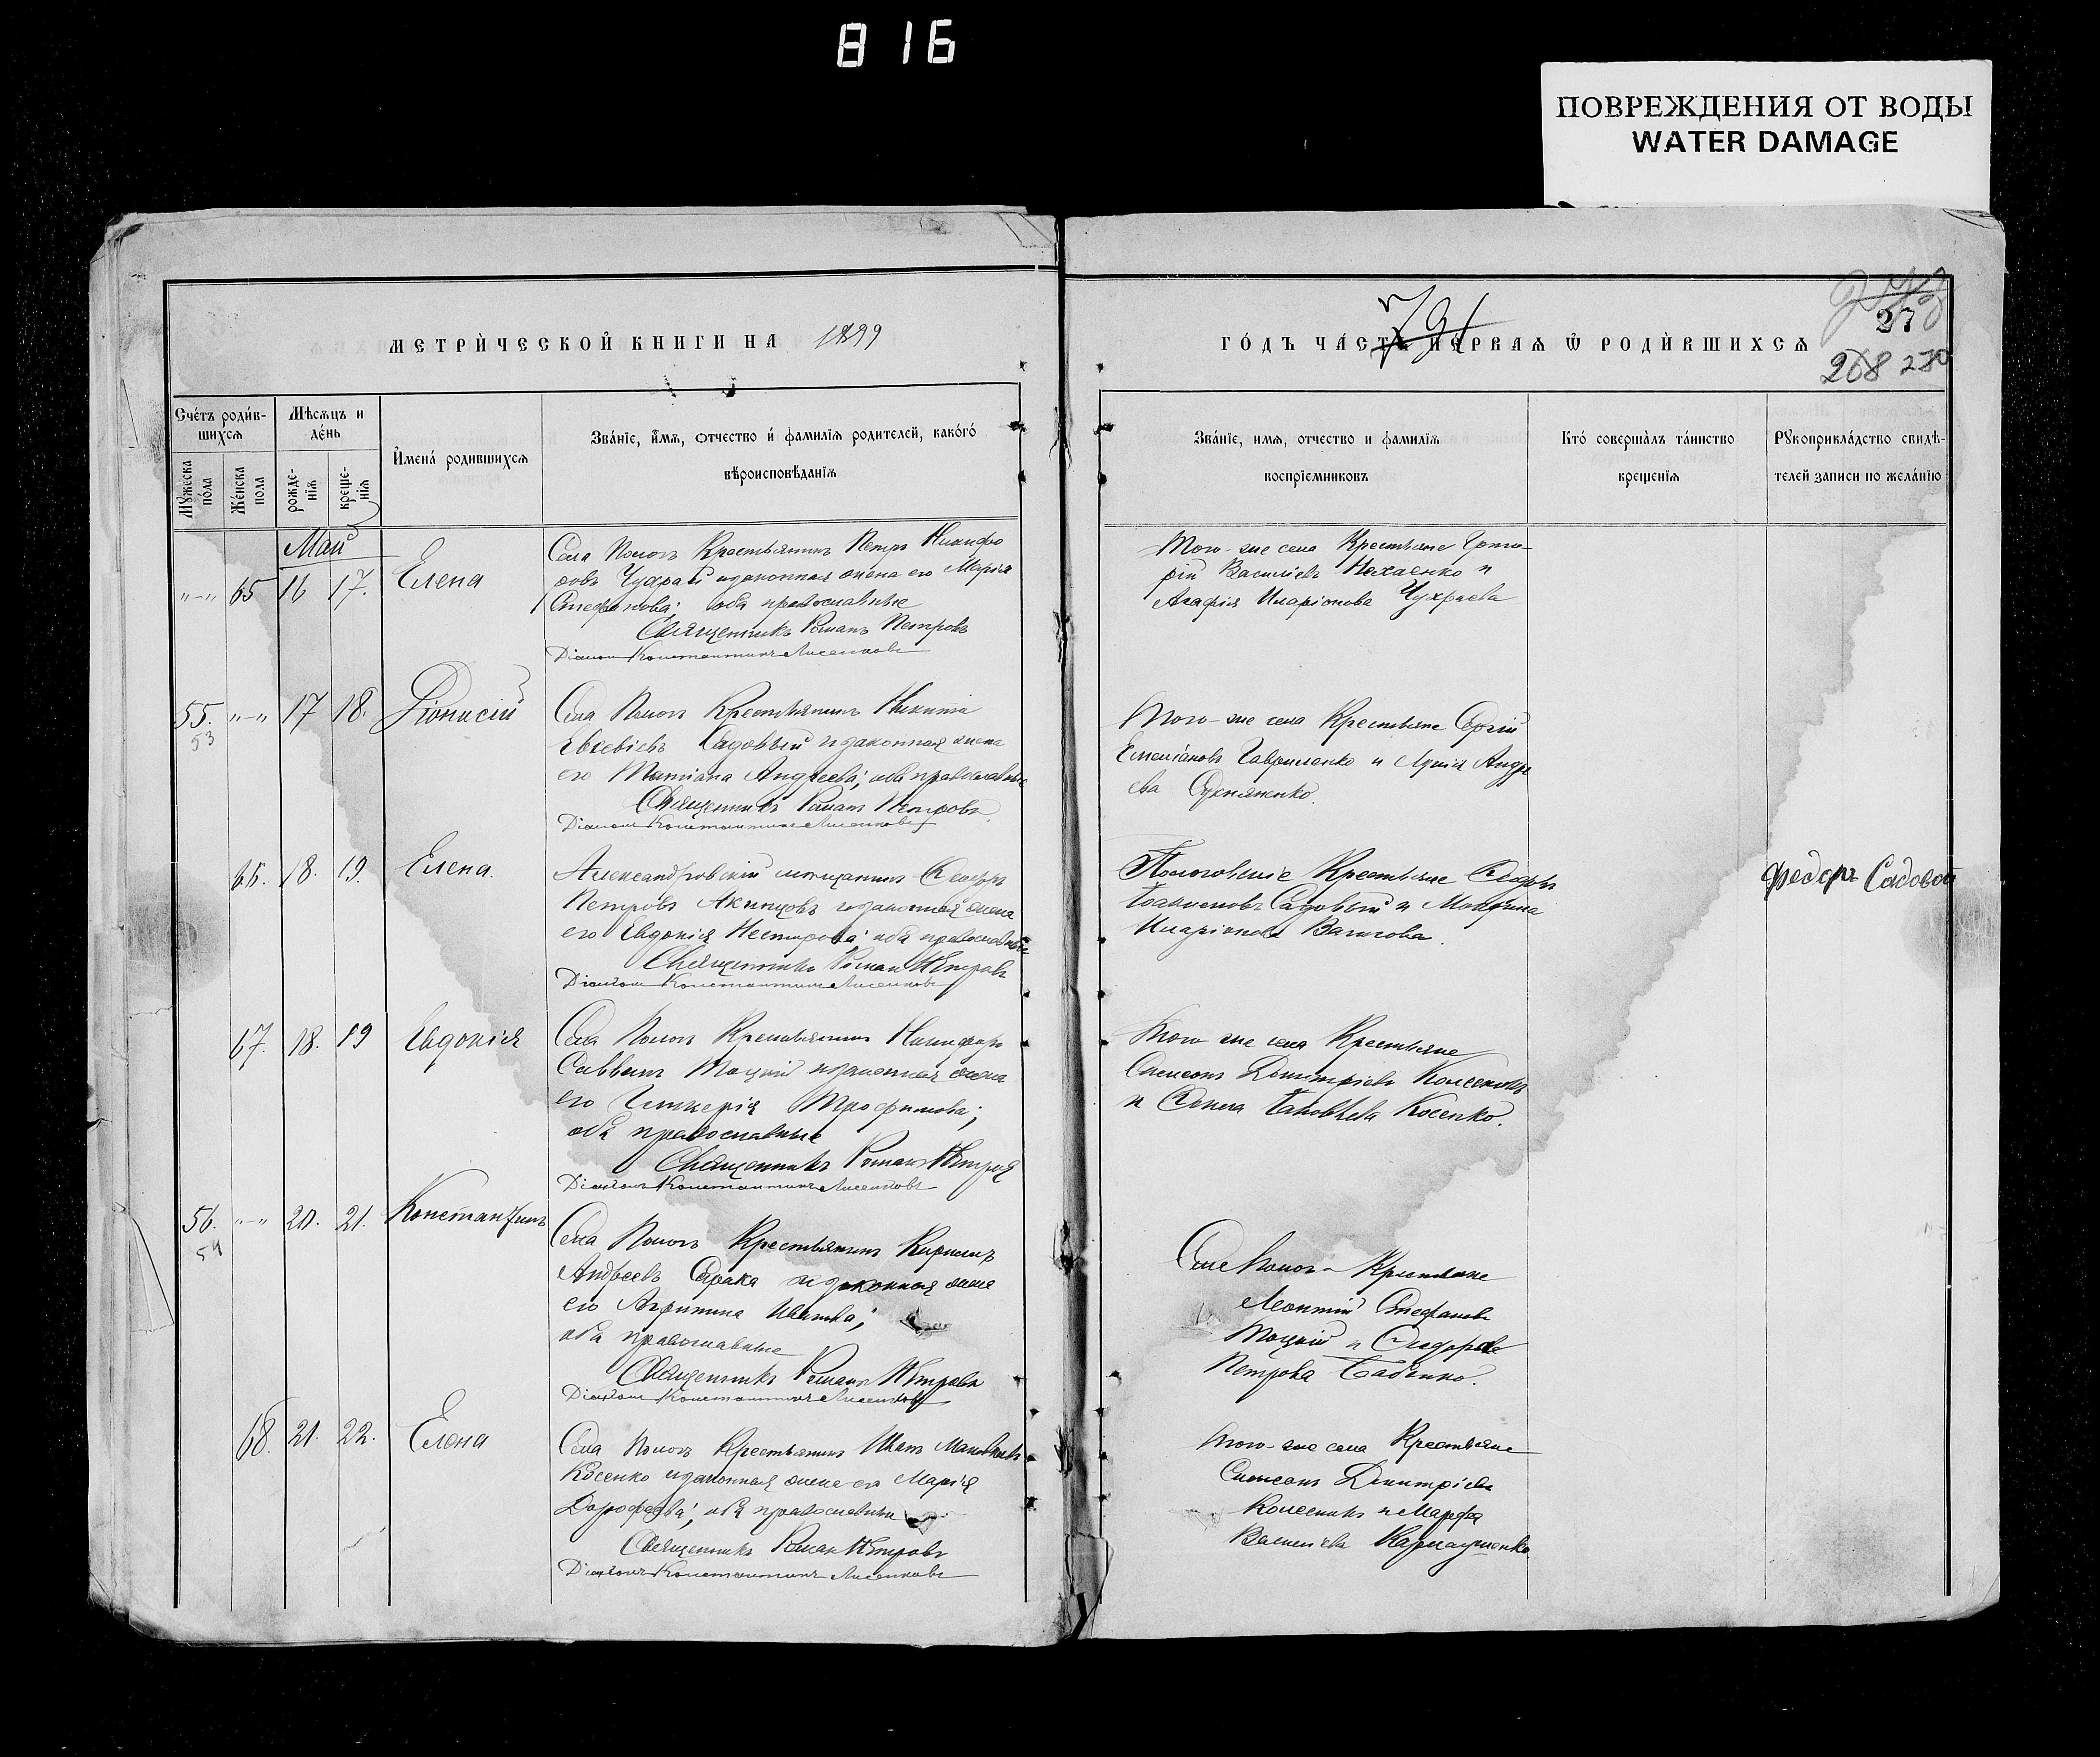 816
ПОВРЕЖДЕНИЯ ОТ ВОДЫ
WATER DAMAGE
МЕТРИ́ЧЕСКОЙ КНИГИ НА 1899
ГО́ДЪ ЧА́СТЬ ПЕ́РВАѦ Ѿ РОДИ́ВШИХСѦ
791
27
268 270
Сче́тъ роди́в-
шихсѧ
Мѣсѧцъ и
де́нь
Мꙋжеска
по́ла
Же́нска
пола
рожде-
нїѧ
креще-
нїѧ
И҆мена́ родившихсѧ
Зва́нїе, и҆мѧ, отчество и҆ фамилїѧ родителей, како́гѡ
вѣроисповѣ́данїѧ
Зва́нїе, имѧ, отчество и фамилїѧ
воспрїемниковъ
Кто́ соверша́лъ та́инство
крещенїѧ
Рꙋкоприкла́дство свидѣ-
телей записи по жела́нїю
Май
"–" 65 16 17. Елена
Села Пологъ Крестьянинъ Петръ Никифо
ровъ Чухрай и законная жена его Марія
Стефанова; оба православные
Священникъ Романъ Петровъ
Діаконъ Константинъ Лисенковъ
Того-же села Крестьяне Григо-
рій Василіевъ Нехаенко и
Агафія Иларіонова Чухраева
55. "–" 17 18. Діонисій
53
Села Пологъ Крестьянинъ Никита
Евсевіевъ Садовый и законная жена
его Татіана Андреева; оба православные
Священникъ Романъ Петровъ
Діаконъ Константинъ Лисенковъ
Того-же села Крестьяне Сергій
Емеліановъ Гавриленко и Андре
ева
66. 18. 19. Елена.
Александровскій мѣщанинъ Ѳеодоръ
Петровъ Акимовъ и законная жена
его Евдокія Несторова; оба православные
Священникъ Романъ Петровъ
Діаконъ Константинъ Лисенковъ
Пологовскіе Крестьяне Ѳеодоръ
Садовый и
Иларіонова
Федоръ Садовой
67. 18. 19 Евдокія
Села Пологъ Крестьянинъ Никифоръ
Саввинъ Тоцкій и законная жена
его Гликерія Трофимова;
оба православные
Священникъ Романъ Петровъ
Діаконъ Константинъ Лисенковъ
Того же села Крестьяне
Симеонъ Димитріевъ Колесникъ
и Яковлева Косенко.
56. "–" 20. 21. Константинъ
54
Села Пологъ Крестьянинъ Кириллъ
Андреевъ и законная жена
его Агрипина Иванова;
оба православные
Священникъ Романъ Петровъ
Діаконъ Константинъ Лисенковъ
Села Пологъ Крестьяне
Леонтій Стефановъ
Тоцкій и Ѳеодора
Петрова Бабенко.
68. 21. 22. Елена
Села Пологъ Крестьянинъ Иванъ
Косенко и законная жена его Марія
Дорофеева; оба православные
Священникъ Романъ Петровъ
Діаконъ Константинъ Лисенковъ
Того-же села Крестьяне
Симеонъ Димитріевъ
Колесникъ и Марфа
Василіева